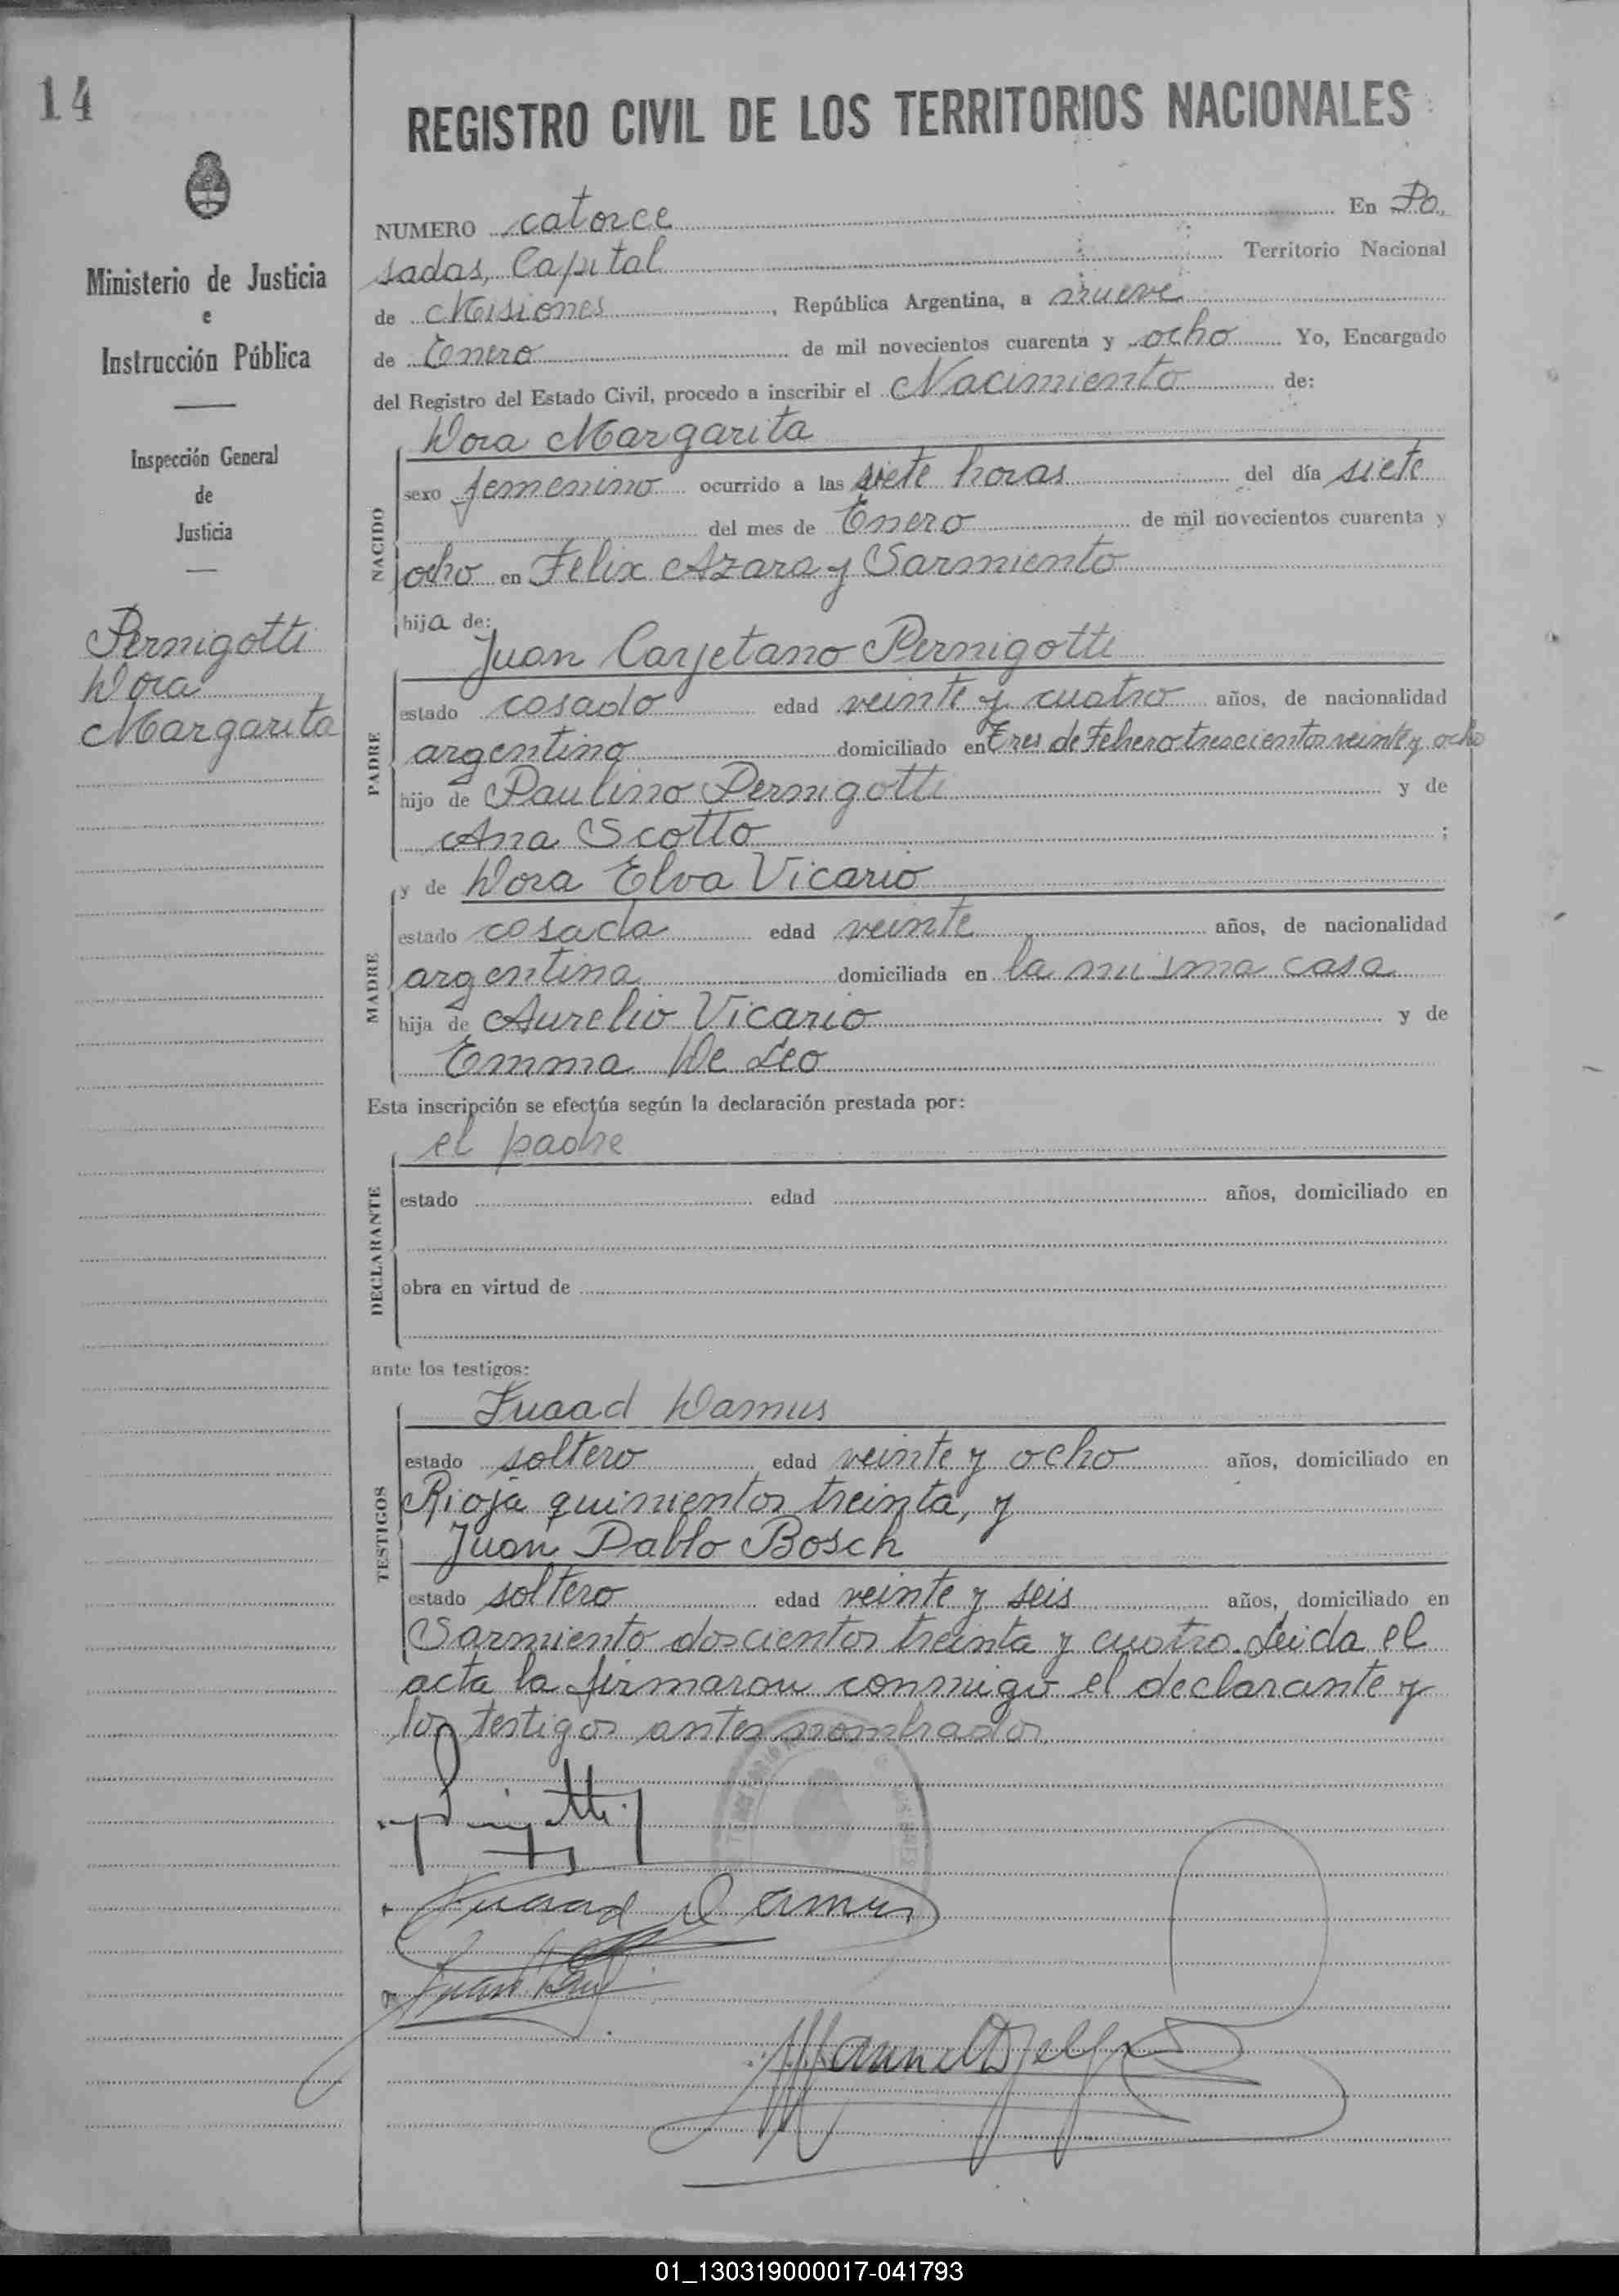 14
REGISTRO CIVIL DE LOS TERRITORIOS NACIONALES
Ministerio de Justicia
e
Instrucción Pública
Inspección General
de
Justicia
Pernigotti
Dora
Margarita
NUMERO catorce En Po
sadas, Capital Territorio Nacional
de Misiones, República Argentina, a nueve
de Enero de mil novecientos cuarenta y ocho Yo, Encargado
del Registro del Estado Civil, procedo a inscribir el Nacimiento de:
Dora Margarita
NACIDO
sexo femenino ocurrido a las siete horas del día siete
del mes de Enero de mil novecientos cuarenta y
ocho en Felix Azara y Sarmiento
hija de:
Juan Cayetano Pernigotti
PADRE
estado casado edad veinte y cuatro años, de nacionalidad
argentino domiciliado en Tres de Febrero trescientos veinte y ocho
hijo de Paulino Pernigotti y de
Ana Scotto ;
y de Dora Elva Vicario
MADRE
estado casada edad veinte años, de nacionalidad
argentina domiciliada en la misma casa
hija de Aurelio Vicario y de
Emma De Leo
Esta inscripción se efectúa según la declaración prestada por:
el padre
DECLARANTE
estado edad años, domiciliado en
obra en virtud de
ante los testigos:
Fuaad Damus
TESTIGOS
estado soltero edad veinte y ocho años, domiciliado en
Rioja quinientos treinta, y
Juan Pablo Bosch
estado soltero edad veinte y seis años, domiciliado en
Sarmiento doscientos treinta y cuatro. Leida el
acta la firmaron conmigo el declarante y
los testigos antes nombrados.
Fuaad Damus
01_130319000017-041793